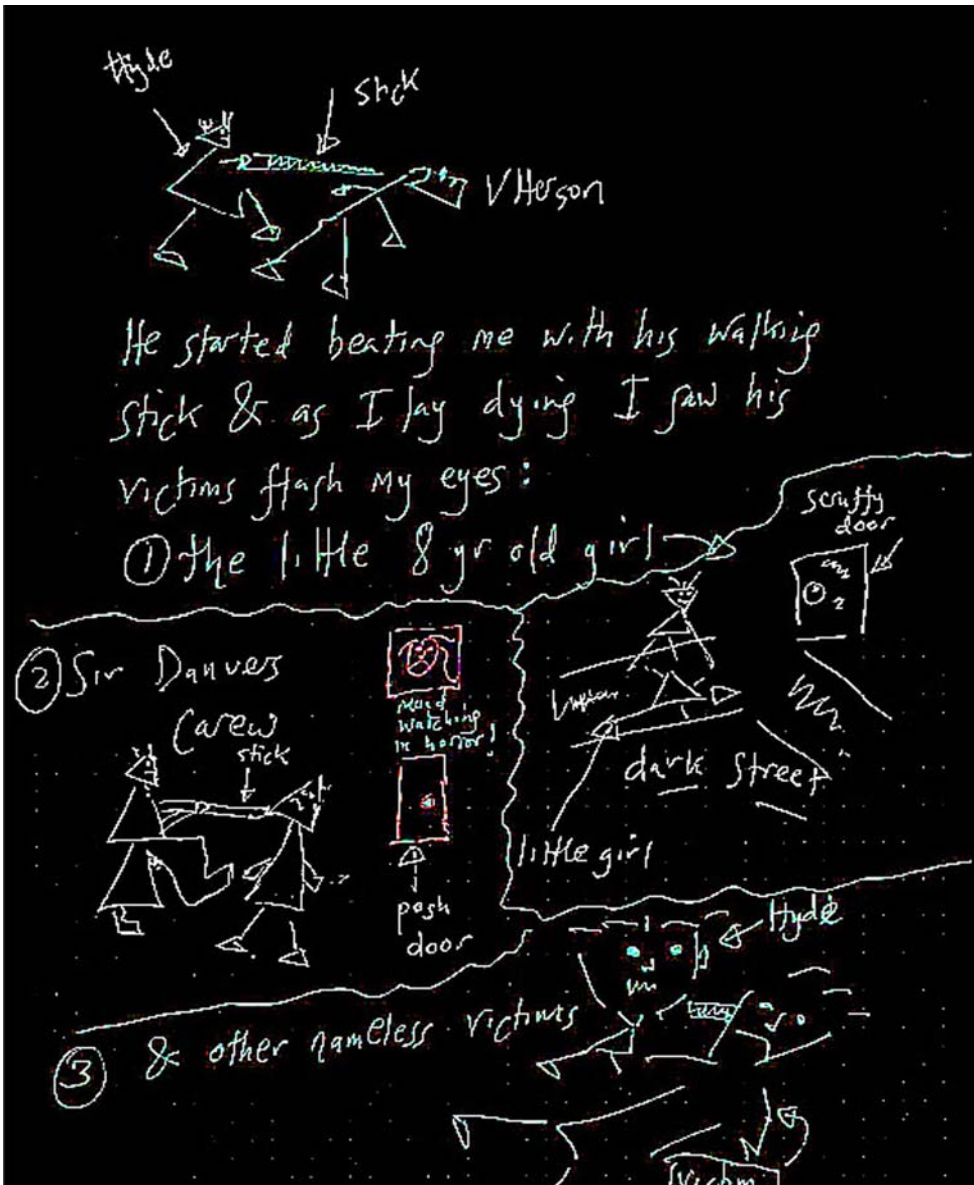 Hyde
stick
Utterson
He started beating me with his walking
stick & as I lay dying I saw his
victims flash my eyes:
① the little 8 yr old girl
scruffy
door
② Sir Danvers
Carew
stick
maid
watching
in horror!
posh
door
dark street
little girl
Hyde
③ & other nameless victims
victim